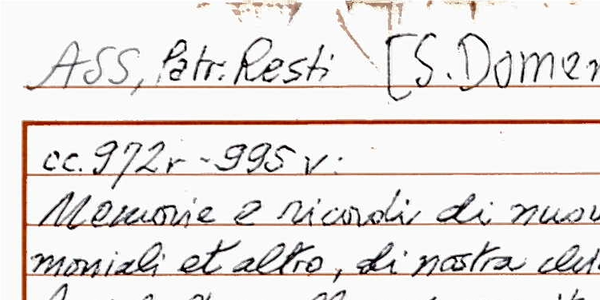 ASS, Patr. Resti [S. Domen
cc. 972r - 995v:
Memorie e ricordi di nuov
moniali et altro, di nostra chi